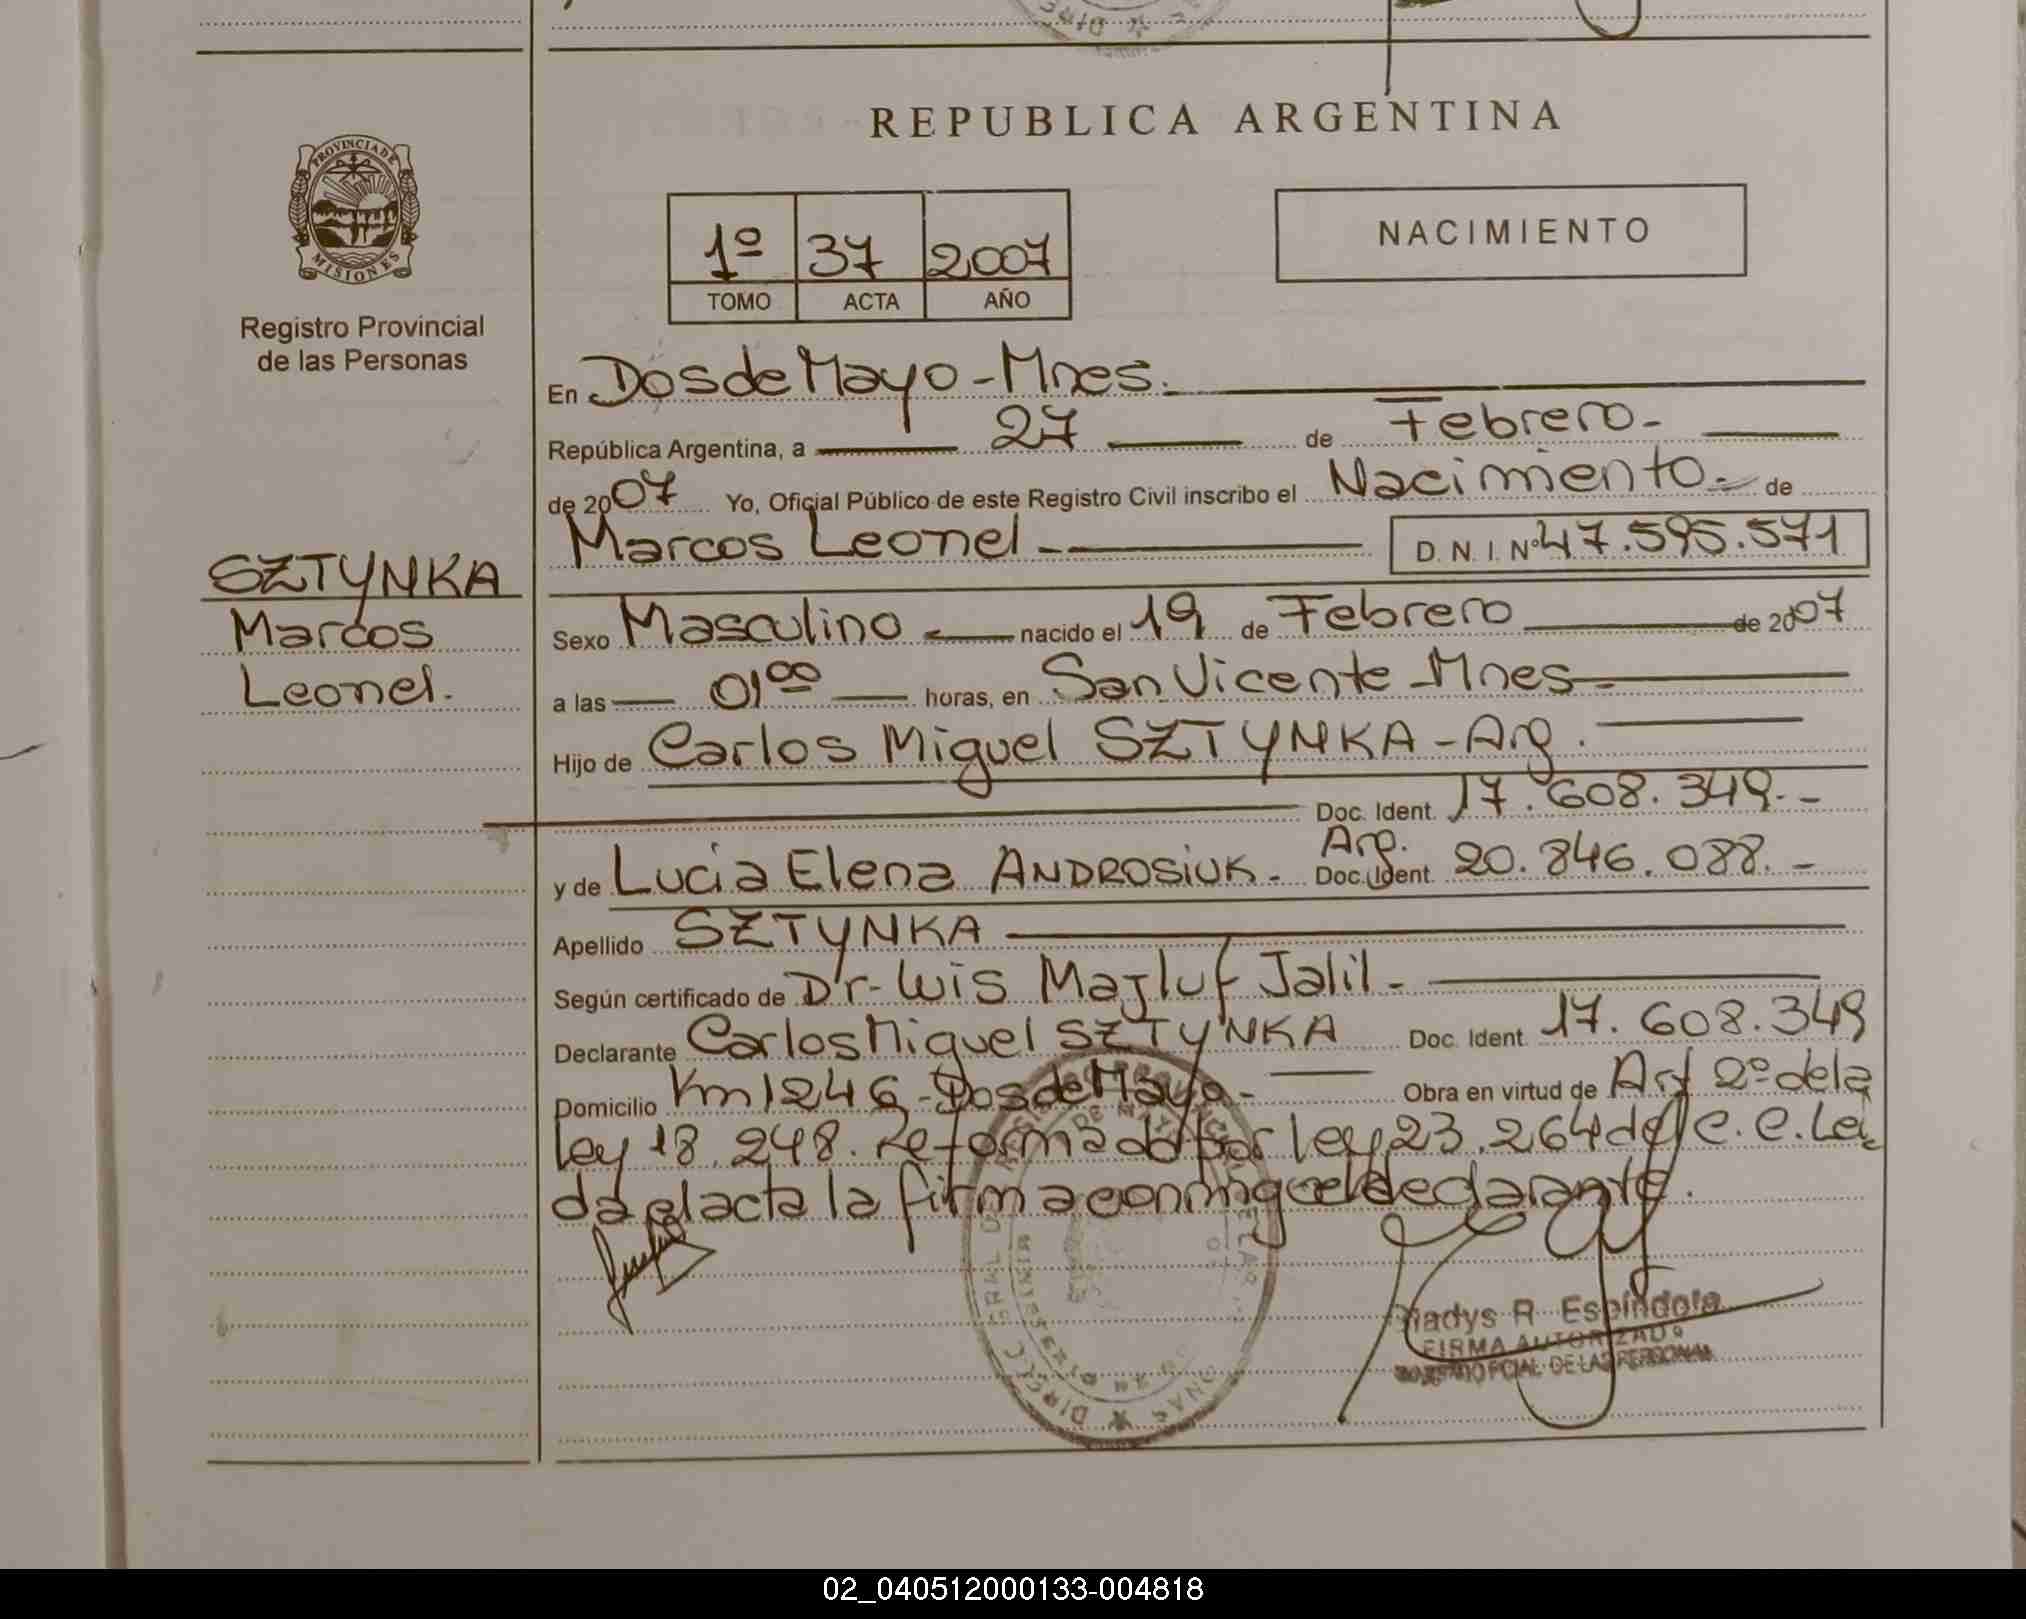 REPUBLICA ARGENTINA
PROVINCIA DE
MISIONES
Registro Provincial
de las Personas
1º 37 2007
TOMO ACTA AÑO
NACIMIENTO
En Dos de Mayo - Mnes.
República Argentina, a 27 de Febrero.
de 2007 Yo, Oficial Público de este Registro Civil inscribo el Nacimiento. de
Marcos Leonel D. N. I. Nº 47.595.571
SZTYNKA
Marcos
Leonel.
Sexo Masculino nacido el 19 de Febrero de 2007
a las 01⁰⁰ horas, en San Vicente - Mnes
Hijo de Carlos Miguel SZTYNKA - Arg.
Doc. Ident. 17.608.349.-
Arg.
y de Lucia Elena ANDROSIUK. Doc. Ident. 20.846.088.-
Apellido SZTYNKA
Según certificado de Dr. Luis Majluf Jalil.
Declarante Carlos Miguel SZTYNKA Doc. Ident. 17.608.349
Domicilio Km 1246 - Dos de Mayo. Obra en virtud de Art 2º de la
ley 18.248. Reformado por ley 23.264 del C.C. Lei
da el acta la firma conmigo el declarante.
Gladys R. Espíndola
FIRMA AUTORIZADA
REGISTRO PCIAL. DE LAS PERSONAS
02_040512000133-004818